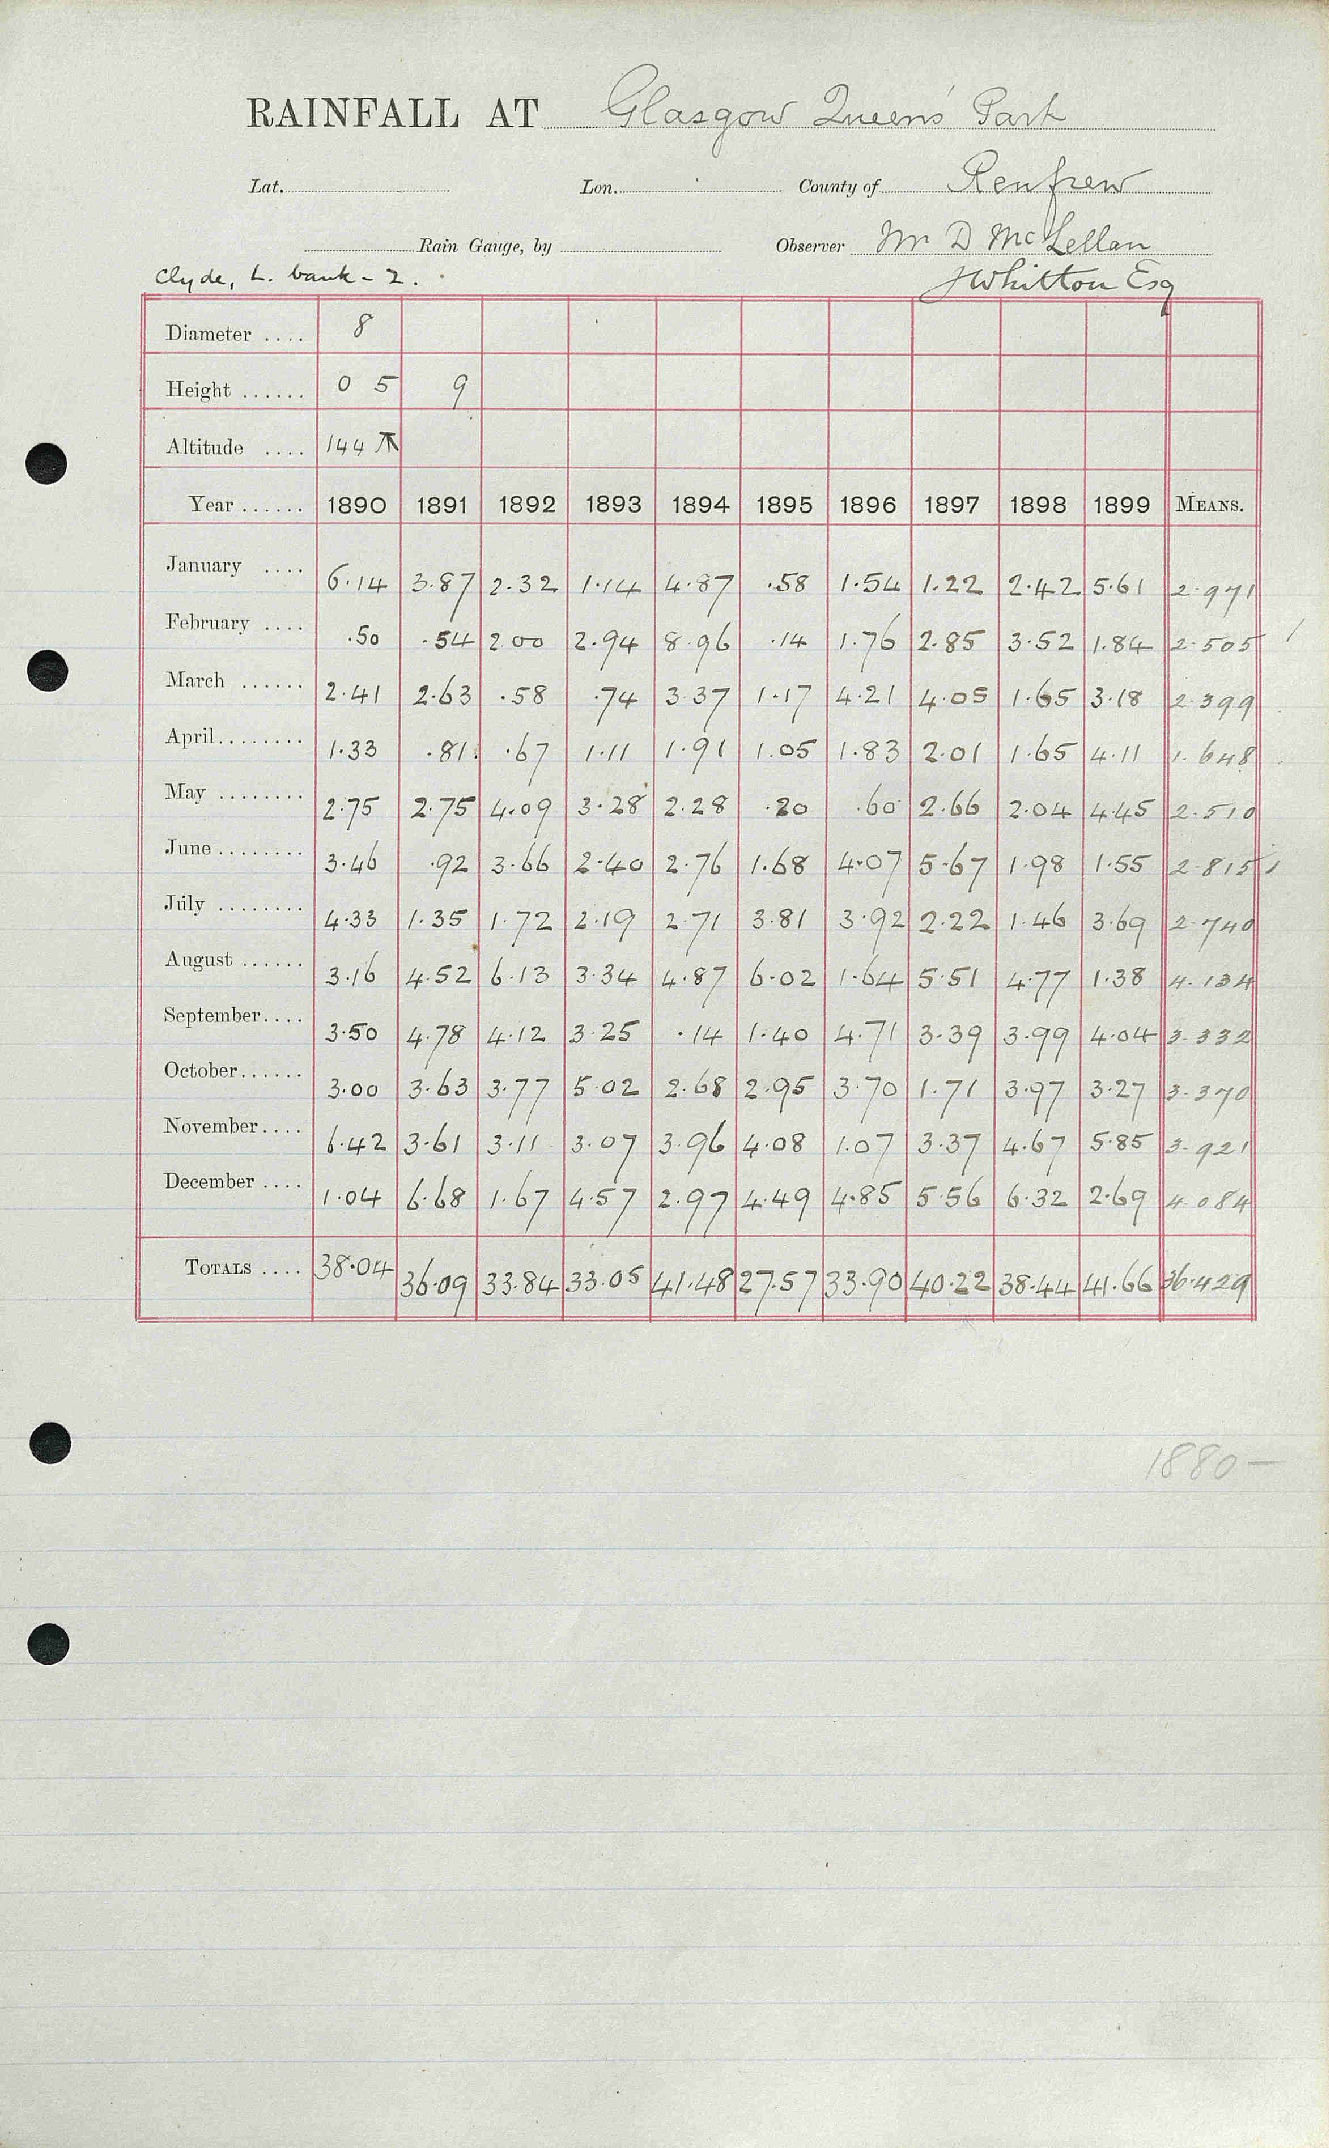 RAINFALL AT Glasgow Queen's Park
Lat. Lon. County of Renfrew
Rain Gauge, by Observer Mr D McLellan
Clyde, L. bank - 2. J Whitton Esq
Diameter .... 8
Height ...... 0 5 9
Altitude .... 144
Year ...... 1890 1891 1892 1893 1894 1895 1896 1897 1898 1899 MEANS.
January .... 6.14 3.87 2.32 1.14 4.87 .58 1.54 1.22 2.42 5.61 2.971
February .... .50 .54 2.00 2.94 8.96 .14 1.76 2.85 3.52 1.84 2.505
March ...... 2.41 2.63 .58 .74 3.37 1.17 4.21 4.05 1.65 3.18 2.399
April ........ 1.33 .81 .67 1.11 1.91 1.05 1.83 2.01 1.65 4.11 1.648
May ........ 2.75 2.75 4.09 3.28 2.28 .20 .60 2.66 2.04 4.45 2.510
June ........ 3.46 .92 3.66 2.40 2.76 1.68 4.07 5.67 1.98 1.55 2.815
July ........ 4.33 1.35 1.72 2.19 2.71 3.81 3.92 2.22 1.46 3.69 2.740
August ...... 3.16 4.52 6.13 3.34 4.87 6.02 1.64 5.51 4.77 1.38 4.134
September .... 3.50 4.78 4.12 3.25 .14 1.40 4.71 3.39 3.99 4.04 3.332
October ...... 3.00 3.63 3.77 5.02 2.68 2.95 3.70 1.71 3.97 3.27 3.370
November .... 6.42 3.61 3.11 3.07 3.96 4.08 1.07 3.37 4.67 5.85 3.921
December .... 1.04 6.68 1.67 4.57 2.97 4.49 4.85 5.56 6.32 2.69 4.084
TOTALS .... 38.04 36.09 33.84 33.05 41.48 27.57 33.90 40.22 38.44 41.66 36.429
1880 —